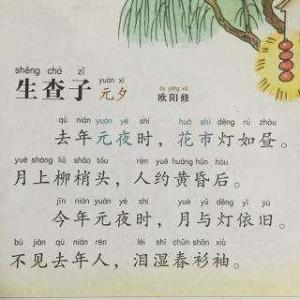 shēng chá zǐ yuán xī
生查子 元夕 欧阳修
qù nián yuán yè shí huā shì dēng rú zhòu
去年元夜时，花市灯如昼。
yuè shàng liǔ shāo tóu rén yuē huáng hūn hòu
月上柳梢头，人约黄昏后。
jīn nián yuán yè shí yuè yǔ dēng yī jiù
今年元夜时，月与灯依旧。
bù jiàn qù nián rén lèi shī chūn shān xiù
不见去年人，泪湿春衫袖。